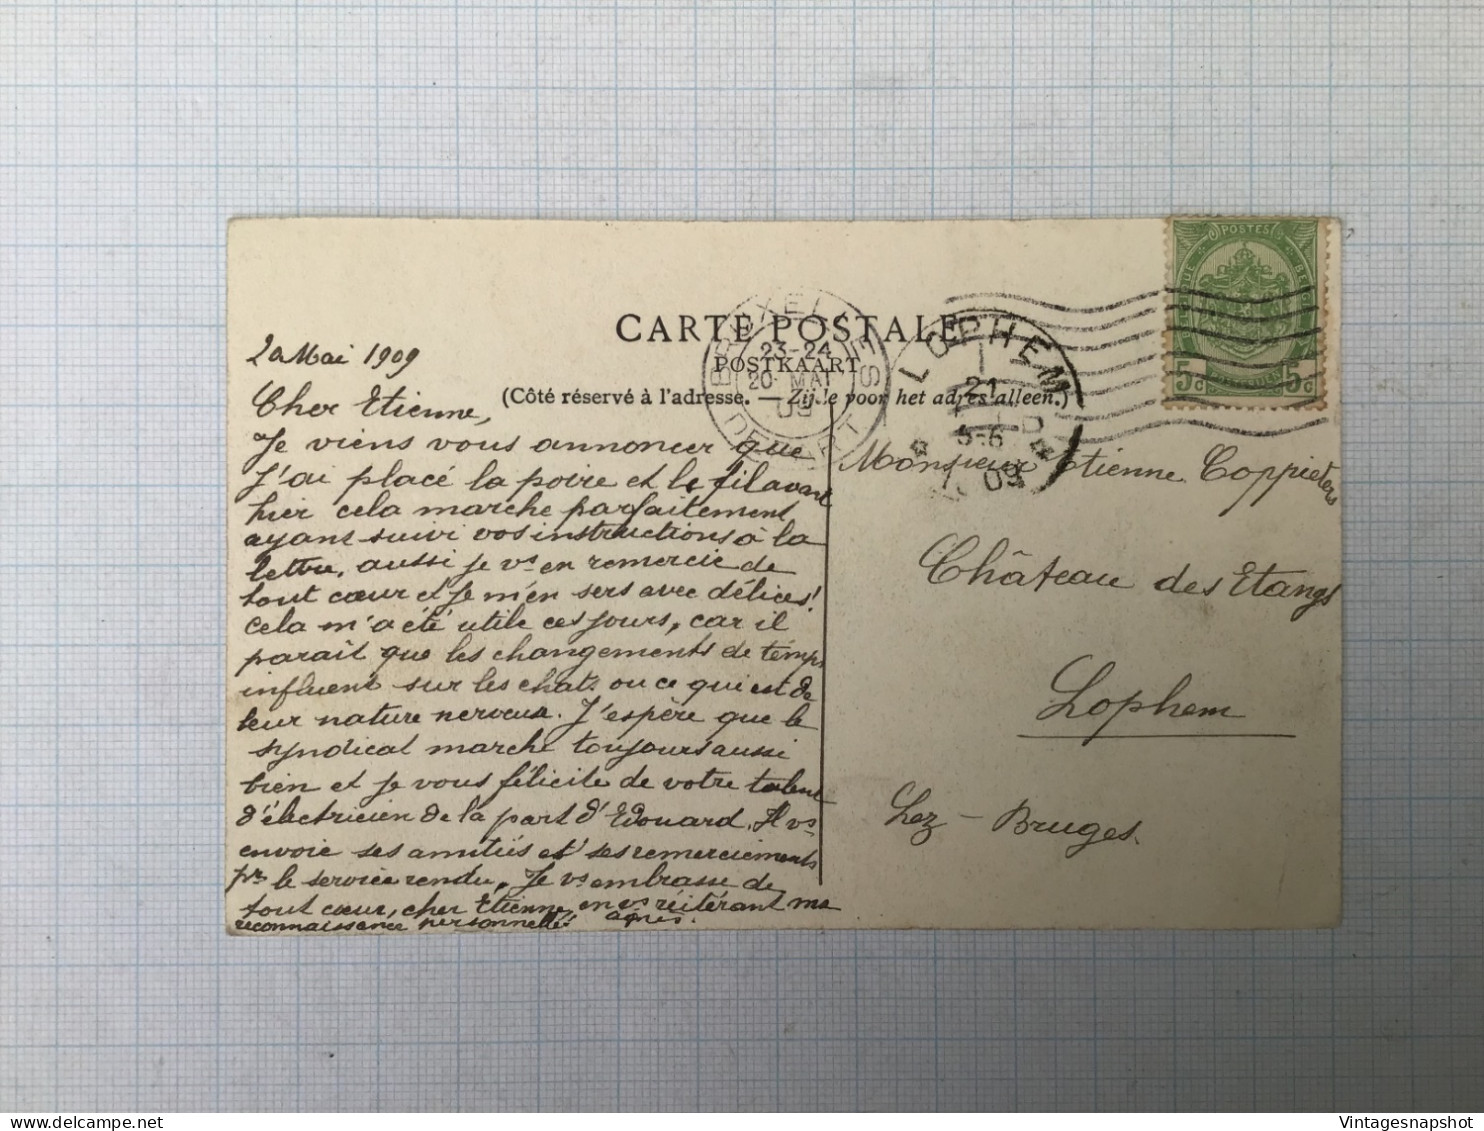 CARTE POSTALE
POSTKAART
(Côté réservé à l'adresse. — Zijde voor het adres alleen.)
BRUXELLES
23-24
20 MAI
09
DEPART
LOPHEM
21
5-6
09
POSTES
5c 5c
20 Mai 1909
Cher Etienne,
Je viens vous annoncer que
J'ai placé la poire et le fil avant
hier cela marche parfaitement
ayant suivi vos instructions à la
lettre, aussi je vs en remercie de
tout cœur et je m'en sers avec délices!
Cela m'a été utile ces jours, car il
parait que les changements de temps
influent sur les chats ou ce qui est de
leur nature nerveux. J'espère que le
syndical marche toujours aussi
bien et je vous félicite de votre talent
d'électricien de la part d'Edouard. Il vs
envoie ses amitiés et ses remerciements
pr le service rendu. Je vs embrasse de
tout cœur, cher Etienne en vs réitérant ma
reconnaissance personnelle! Agnès.
Monsieur Etienne Coppieters
Château des Etangs
Lophem
Lez - Bruges.
Vintagesnapshot